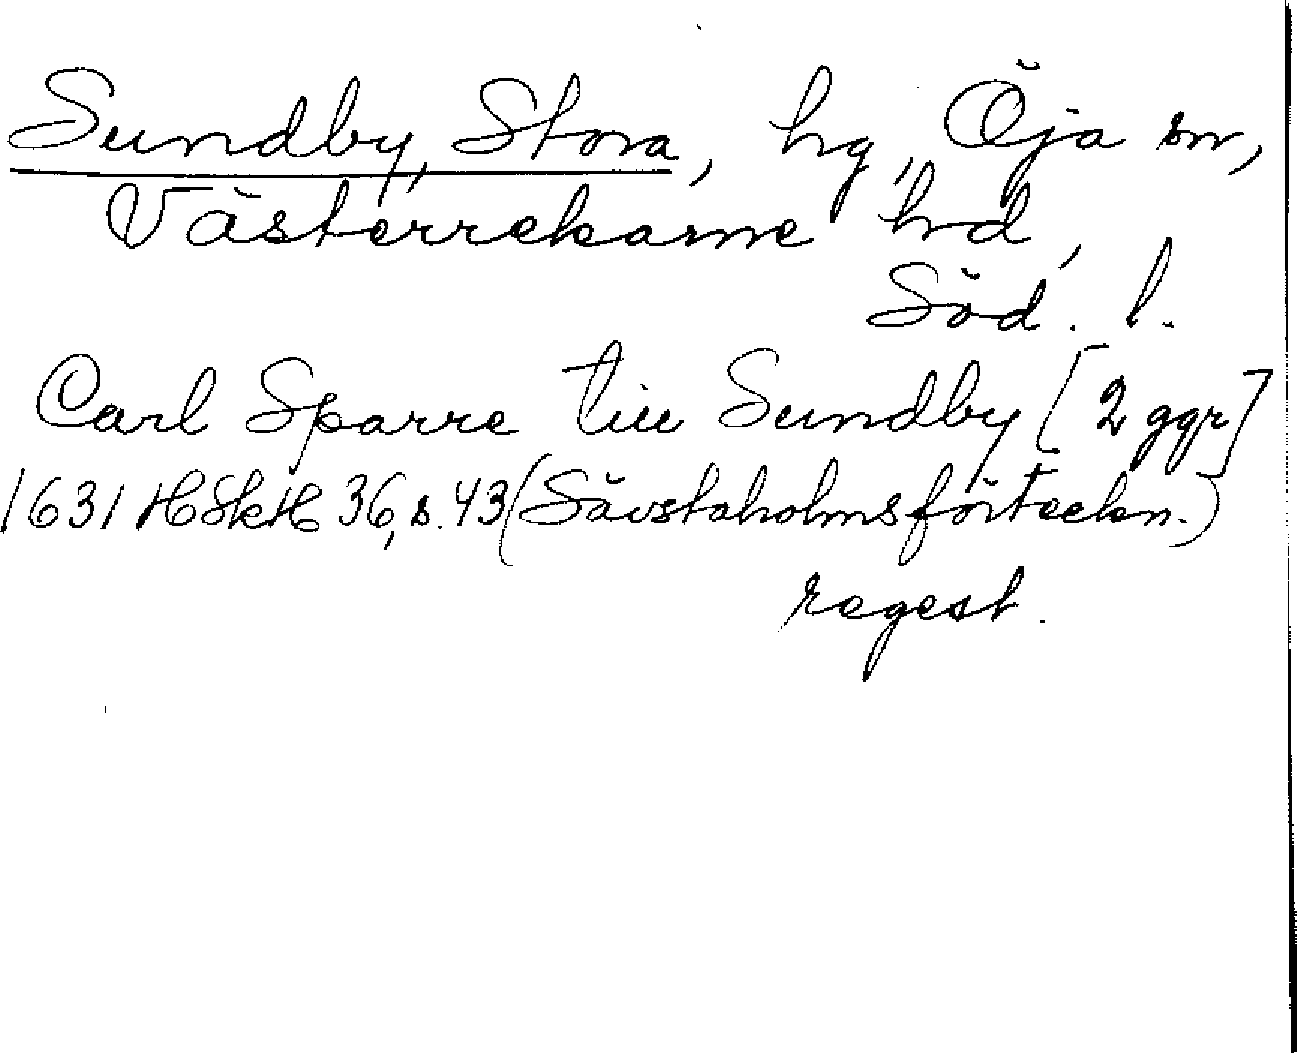 Sundby, Stora, hg, Öja sn,
Västerrekarne hd,
Söd. l.
Carl Sparre till Sundby [2 ggr]
1631 HSkH 36, s. 43 (Sävstaholmsförteckn.)
regest.